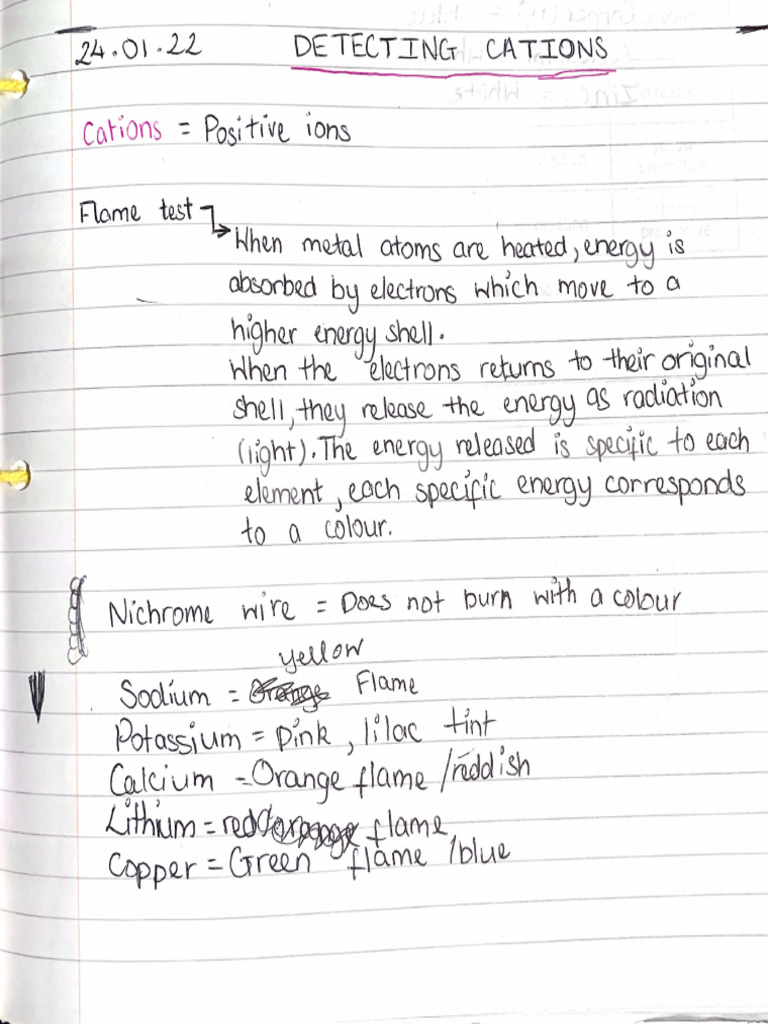 24.01.22 DETECTING CATIONS
Cations = Positive ions
Flame test
When metal atoms are heated, energy is
absorbed by electrons which move to a
higher energy shell.
When the electrons returns to their original
shell, they release the energy as radiation
(light). The energy released is specific to each
element, each specific energy corresponds
to a colour.
Nichrome wire = Does not burn with a colour
yellow
Sodium = Orange Flame
Potassium = pink, lilac tint
Calcium = Orange flame / reddish
Lithium = red/orange flame
Copper = Green flame / blue